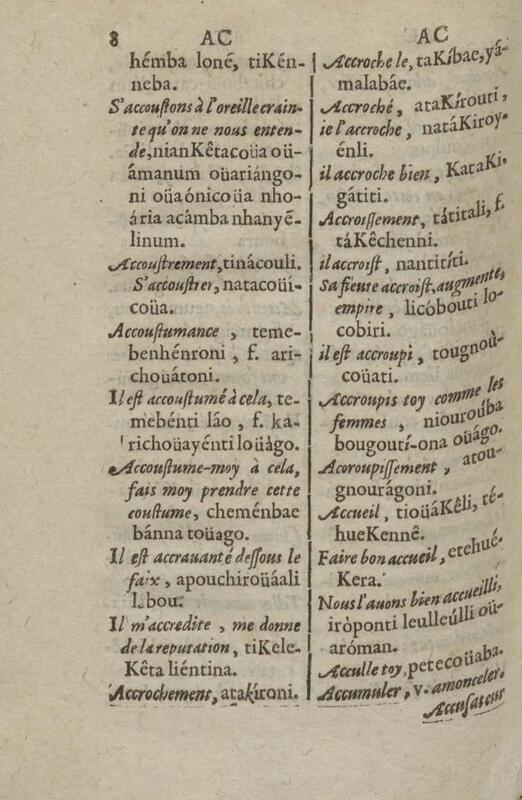 8 AC
hémba loné, tiKén-
neba.
S'accouſtons à l'oreille crain-
te qu'on ne nous enten-
de, nianKêtacoüa oü-
âmanum oüariángo-
ni oüaónicoüa nho-
ária acámba nhanyê-
linum.
Accouſtrement, tinácouli.
S'accouſtrer, natacoüi-
coüa.
Accouſtumance , teme-
benhénroni , f. ari-
choüátoni.
Il eſt accouſtumé à cela, te-
mebénti láo , f. ka-
richoüayénti loüágo.
Accouſtume-moy à cela,
fais moy prendre cette
couſtume, cheménbae
bánna toüago.
Il eſt accrauanté deſſous le
faix , apouchiroüáali
Lbou.
Il m'accredite , me donne
de la reputation, tiKele-
Kêta liéntina.
Accrochement, atakíroni.
AC
Accroche le, taKíbae, yá-
malabáe.
Accroché , ataKírouti,
ie l'accroche , natáKiroy-
énli.
il accroche bien , KataKi-
gátiti.
Accroiſſement, tátitali, f.
táKêchenni.
il accroiſt , nantitíti.
Sa fieure accroiſt, augmente,
empire , licóbouti lo-
cobiri.
il eſt accroupi , tougnoù-
coüati.
Accroupis toy comme les
femmes , niouroúba
bougoutí-ona oüágo.
Acoroupiſſement , atou-
gnourágoni.
Accueil , tioüáKêli, té-
hueKennê.
Faire bon accueil, etehué-
Kera.
Nous l'auons bien accueilli,
iròponti leulleúlli oü-
aróman.
Acculle toy, petecoüaba.
Accumuler, v. amonceler.
Accuſateur